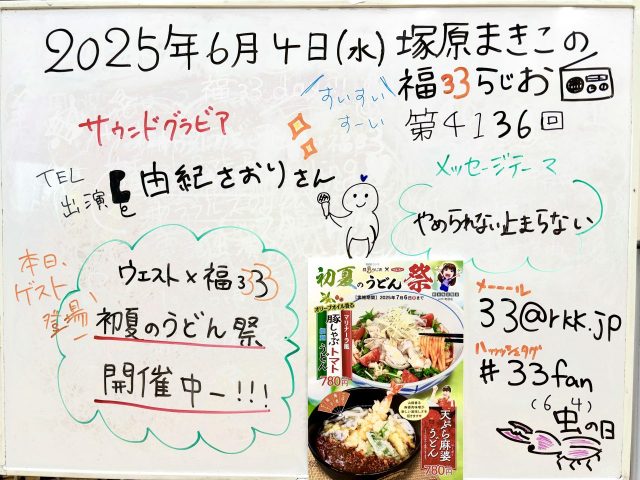 2025年6月4日(水) 塚原まきこの
福33らじお
第4136回
すいすい
すーい
サウンドグラビア
TEL
出演
由紀さおりさん
メッセージテーマ
やめられない止まらない
本日、
ゲスト
登場、
ウエスト×福333
初夏のうどん祭
開催中ー!!!
初夏のうどん祭
2025年7月6日
オリーブオイル香る
マリナーラ風
豚しゃぶトマト
うどん
780円
天ぷら麻婆
うどん
780円
メーール
33@rkk.jp
ハッシュタグ
#33fan
(6 4)
虫の日